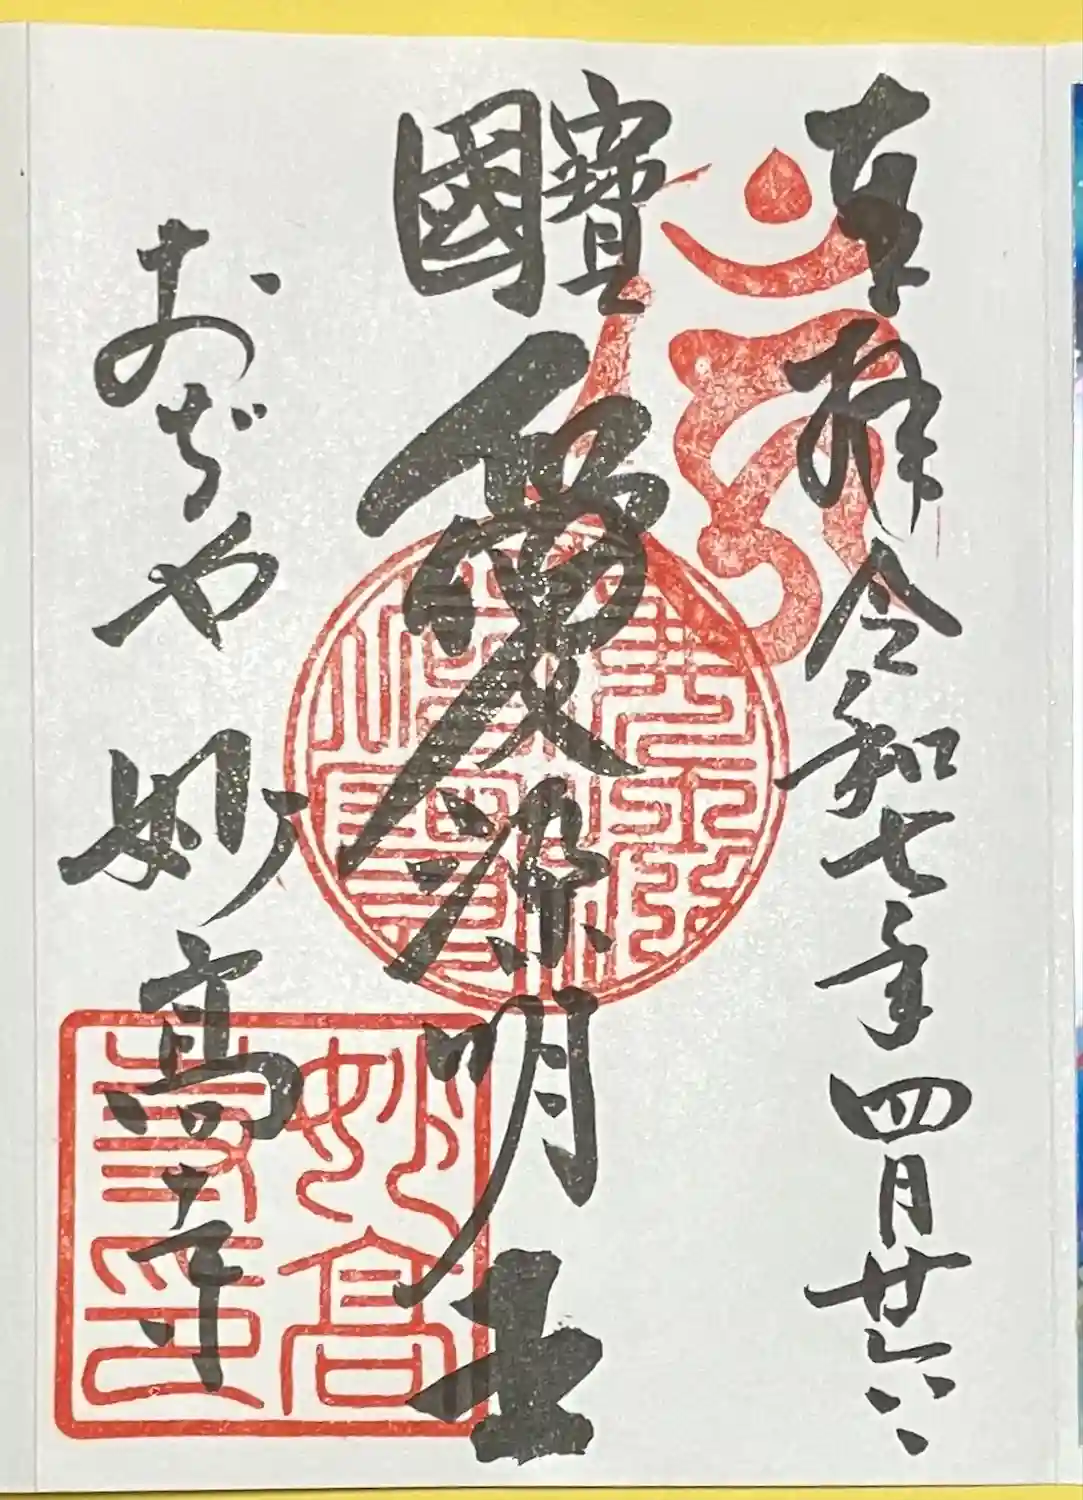 奉拝 令和七年四月廿六
國寶
愛染明王
おぢや 妙高寺
妙高寺印